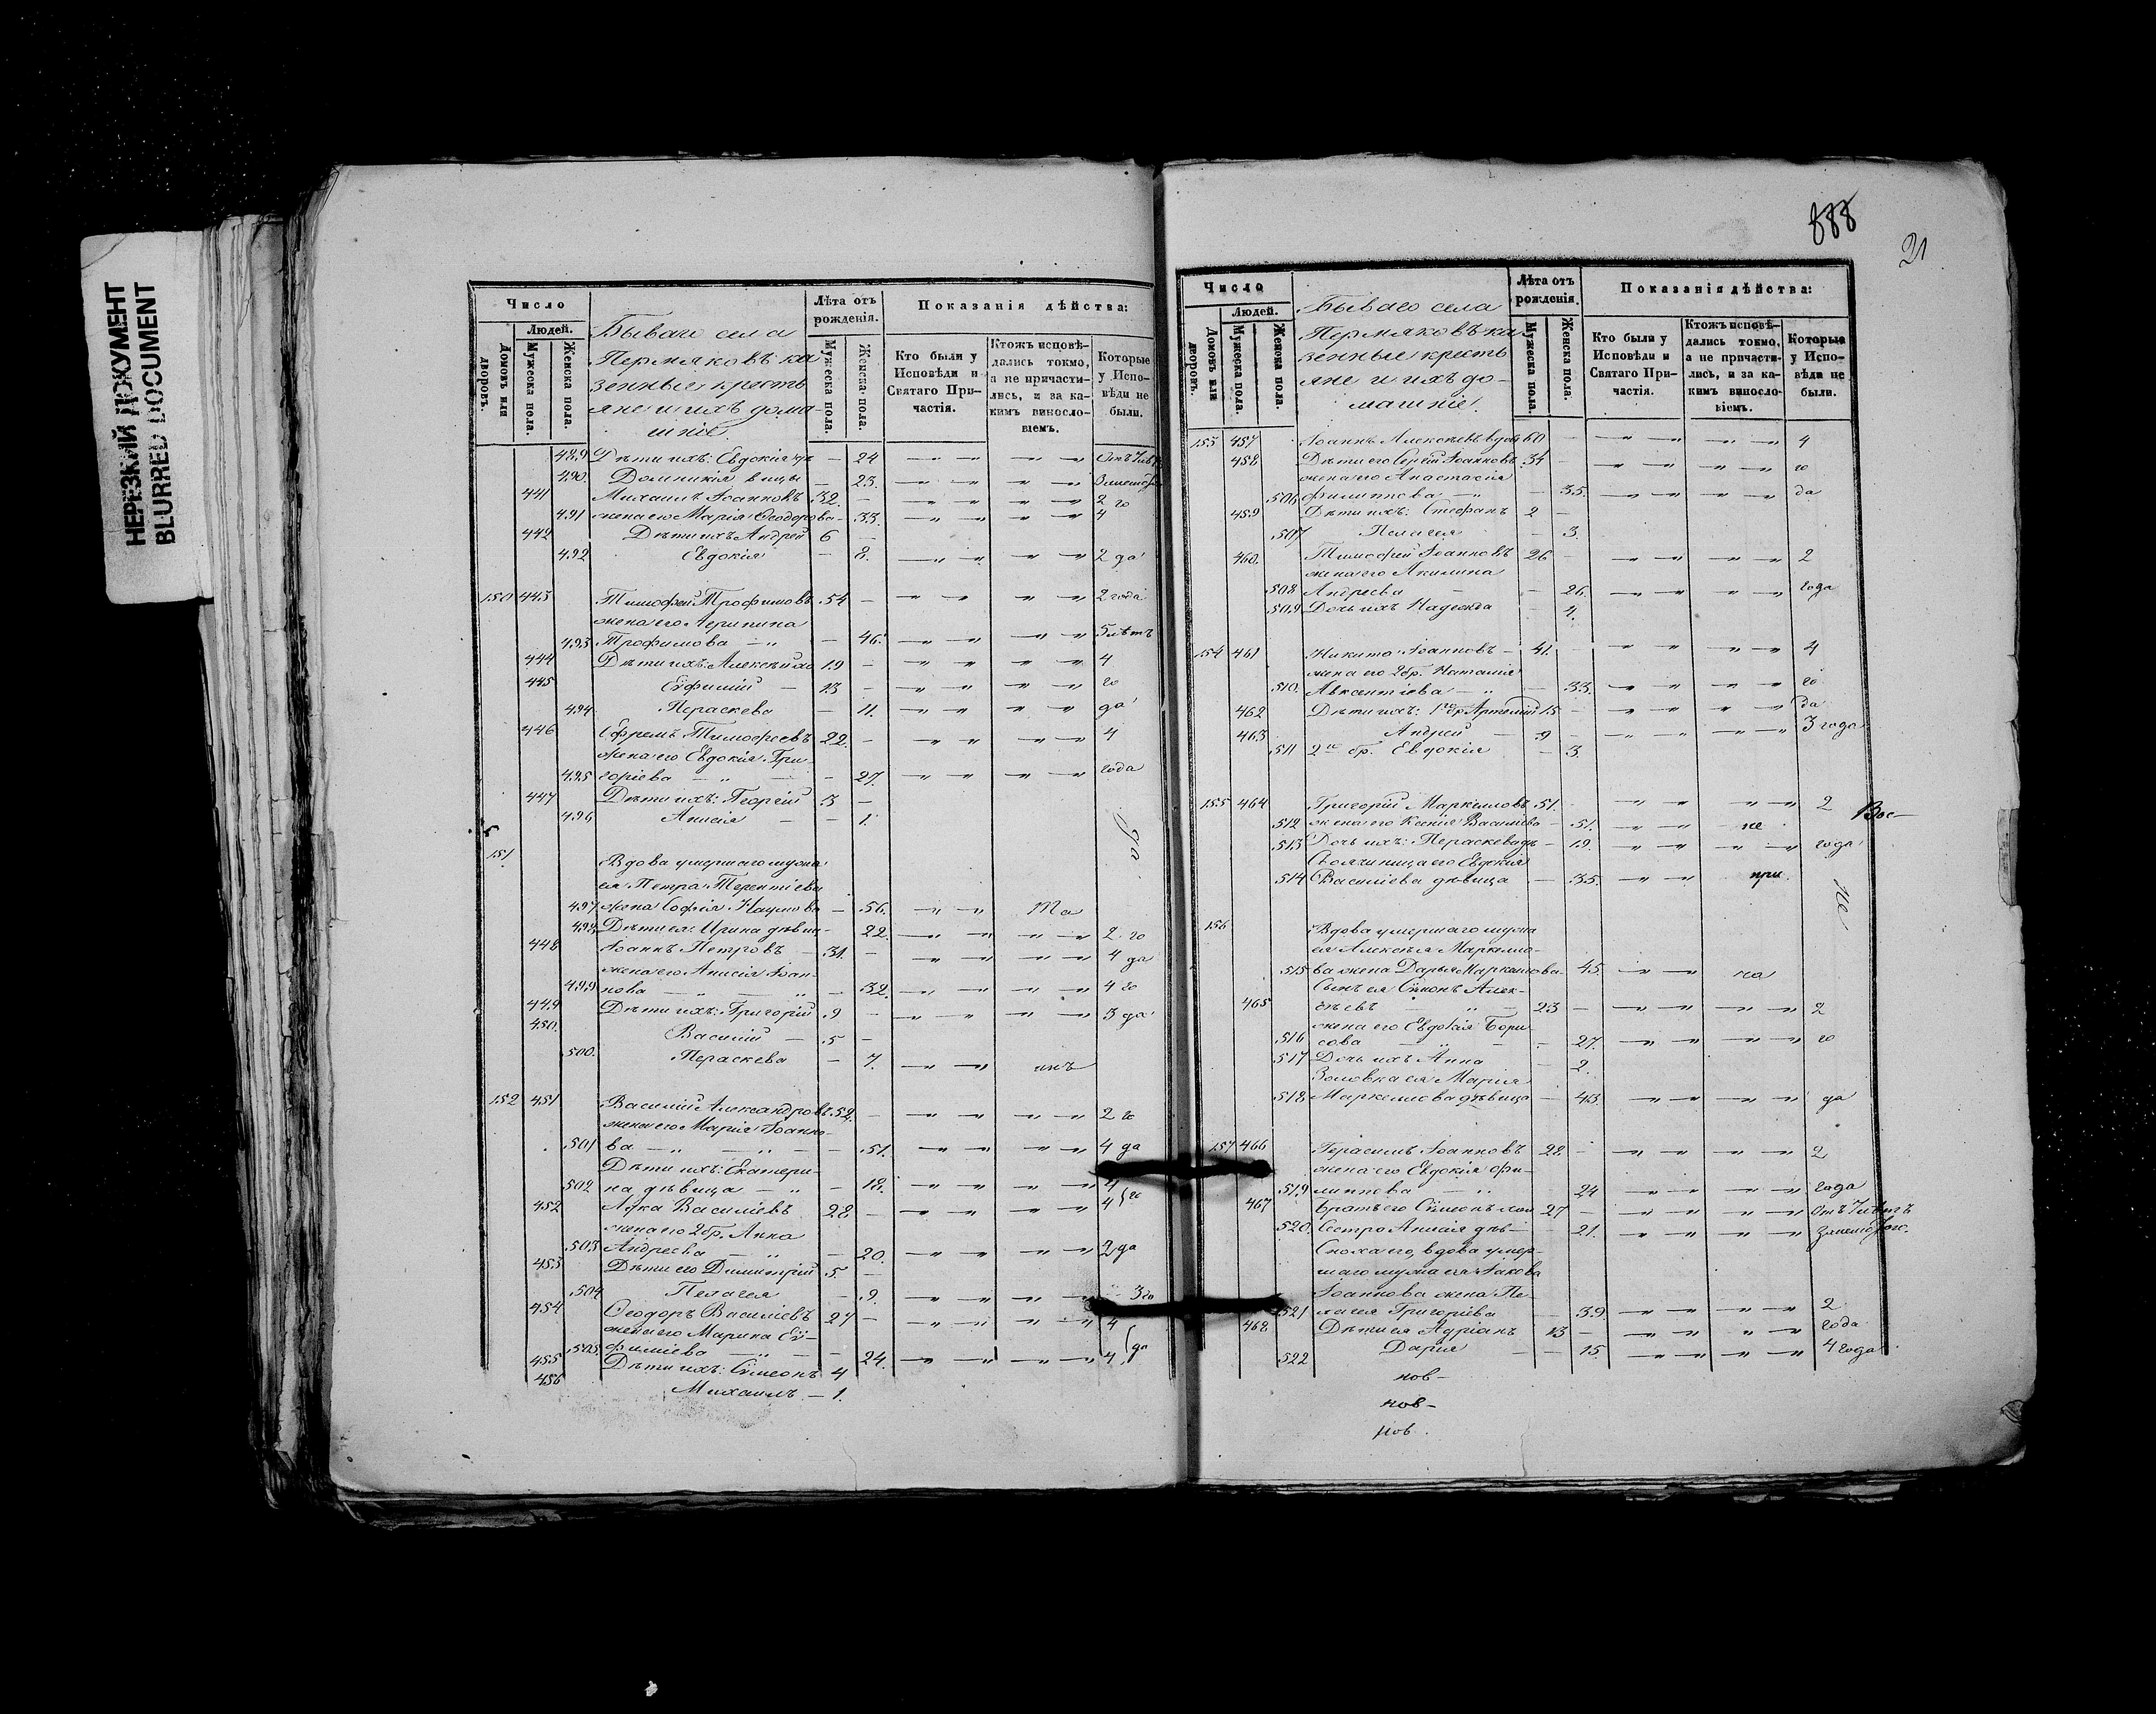 НЕРЕЗКИЙ ДОКУМЕНТ
BLURRED DOCUMENT
Число
Людей.
Домовъ или дворовъ.
Мужеска пола.
Женска пола.
Бываго села
Пермяковъ ка
зенные кресть
яне и ихъ дома-
шніе.
Лѣта отъ рожденія.
Мужеска пола.
Женска пола.
Показанія дѣйства:
Кто были у Исповѣди и Святаго При-частія.
Ктожъ исповѣ-дались токмо, а не причасти-лись, и за ка-кимъ винословіемъ.
Которые у Испо-вѣди не были.
489 Дѣти ихъ: Евдокія — 24
490. Домникія — 23.
441 Михаилъ Іоанновъ 32. — 2 го
491 жена его Марія Ѳеодорова — 33. 4
442 Дѣти ихъ Андрей 6 —
492 Евдокія — 8. 2 да
150 443 Тимофей Трофимовъ 54 — 2 года
жена его
493 Трофимова — 46. 5 лѣтъ
444 Дѣти ихъ: Алексѣй 19 — 4
445 Ефимій — 13 — го
494 Параскева — 11. да
446 Ефремъ Тимофеевъ 22. — 4
жена его Евдокія Гри-
495 горіева — 27. года
447 Дѣти ихъ: Георгій 3 —
496 Анисія — 1.
да
151 Вдова умершаго мужа
ея Петра Терентіева
497 жена Софія Наумова — 56. Ма
498 Дѣти ея: Ирина — 22. 2 го
448 Іоаннъ Петровъ — 31. — 4 да
жена его Анисія Іоан-
499 нова — 32. 4 го
449 Дѣти ихъ: Григорій 9 — 3 да
450. Василій — 5 —
500. Параскева — 7.
152 451 Василій Александровъ 52. — 2 го
жена его Марія Іоанно-
501 ва — 51. 4 да
Дѣти ихъ: Екатери-
502 на дѣвица — 18. 4
452 Василіевъ 28 — 4 го
жена его 2 бр. Анна
503 Андреева — 20. 2 да
453 Дѣти его Димитрій 5. —
504 Пелагея — 9. 3 го
454 Ѳеодоръ Василіевъ 27 — 4
жена его Марина Еѵ-
505 фиміева — 24. 4 да
455 Дѣти ихъ: Сѷмеонъ 4
456 Михаилъ — 1.
888
21
Число
Людей.
Домовъ или дворовъ.
Мужеска пола.
Женска пола.
Бываго села
Пермяковъ ка
зенные кресть
яне и ихъ до-
машніе.
Лѣта отъ рожденія.
Мужеска пола.
Женска пола.
Показанія дѣйства:
Кто были у Исповѣди и Святаго При-частія.
Ктожъ исповѣ-дались токмо, а не причасти-лись, и за ка-кимъ винословіемъ.
Которые у Испо-вѣди не были.
153 457 Іоаннъ Алексѣевъ вдов 60 — 4
458 Дѣти его Сергій Іоанновъ 34 — го
жена его Анастасія
506 Филиппова — 35. да
459 Дѣти ихъ: Стефанъ 2 —
507 Пелагея — 3.
460. Тимофей Іоанновъ 26 — 2
жена его Акилина
508 Андреева — 26. года
509 Дочь ихъ Надежда — 4.
154 461 Никита Іоанновъ — 41. — 4
жена его 2 бр. Наталія
510. Авксентіева — 33. го
462 Дѣти ихъ: 1го бр Артемій 15 — да
463 Андрей — 9 — 3 года
511 2го бр. Евдокія — 3
155 464 Григорій Маркеловъ 51. — 2
Вос—
512 жена его Ксенія Василіева — 51. не
513 Дочь ихъ: Параскева дѣ — 19. года
Своячиница его Евдокія
514 Василіева дѣвица — 35. при
не
156 Вдова умершаго мужа
ея Алексѣя Маркело-
515 ва жена Дарья Маркелова — 45. на
Сынъ ея Сѷмонъ Алек-
465 сѣевъ — 23 — 2
жена его Евдокія Бори-
516 сова — 27. го
517 Дочь ихъ Анна — 2.
Золовка ея Марія
518 Маркелова дѣвица — 43. да
157 466 Герасимъ Іоанновъ 28 — 2
жена его Евдокія Фи-
519 липпова — 24 года
467 Братъ его Сѷмеонъ 27 — Отъ 7 лѣтъ
520. Сестра Анисія дѣв — 21.
Сноха его, вдова умер-
шаго мужа ея Іакова
Іоаннова жена Пе-
521 лагея Григоріева — 39 2
468 Дѣти ея Адріанъ 13 — года
522 Дарія — 15. 4 года
нов—
нов—
нов.